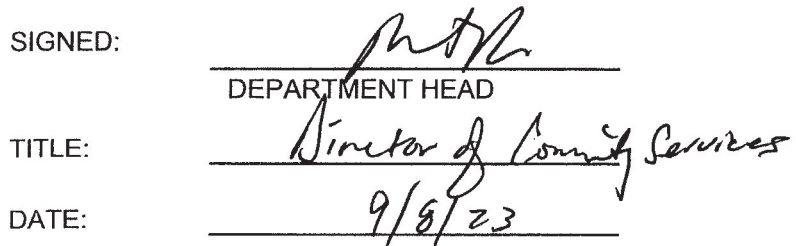 SIGNED:
DEPARTMENT HEAD
TITLE: Director of Community Services
DATE: 9/8/23